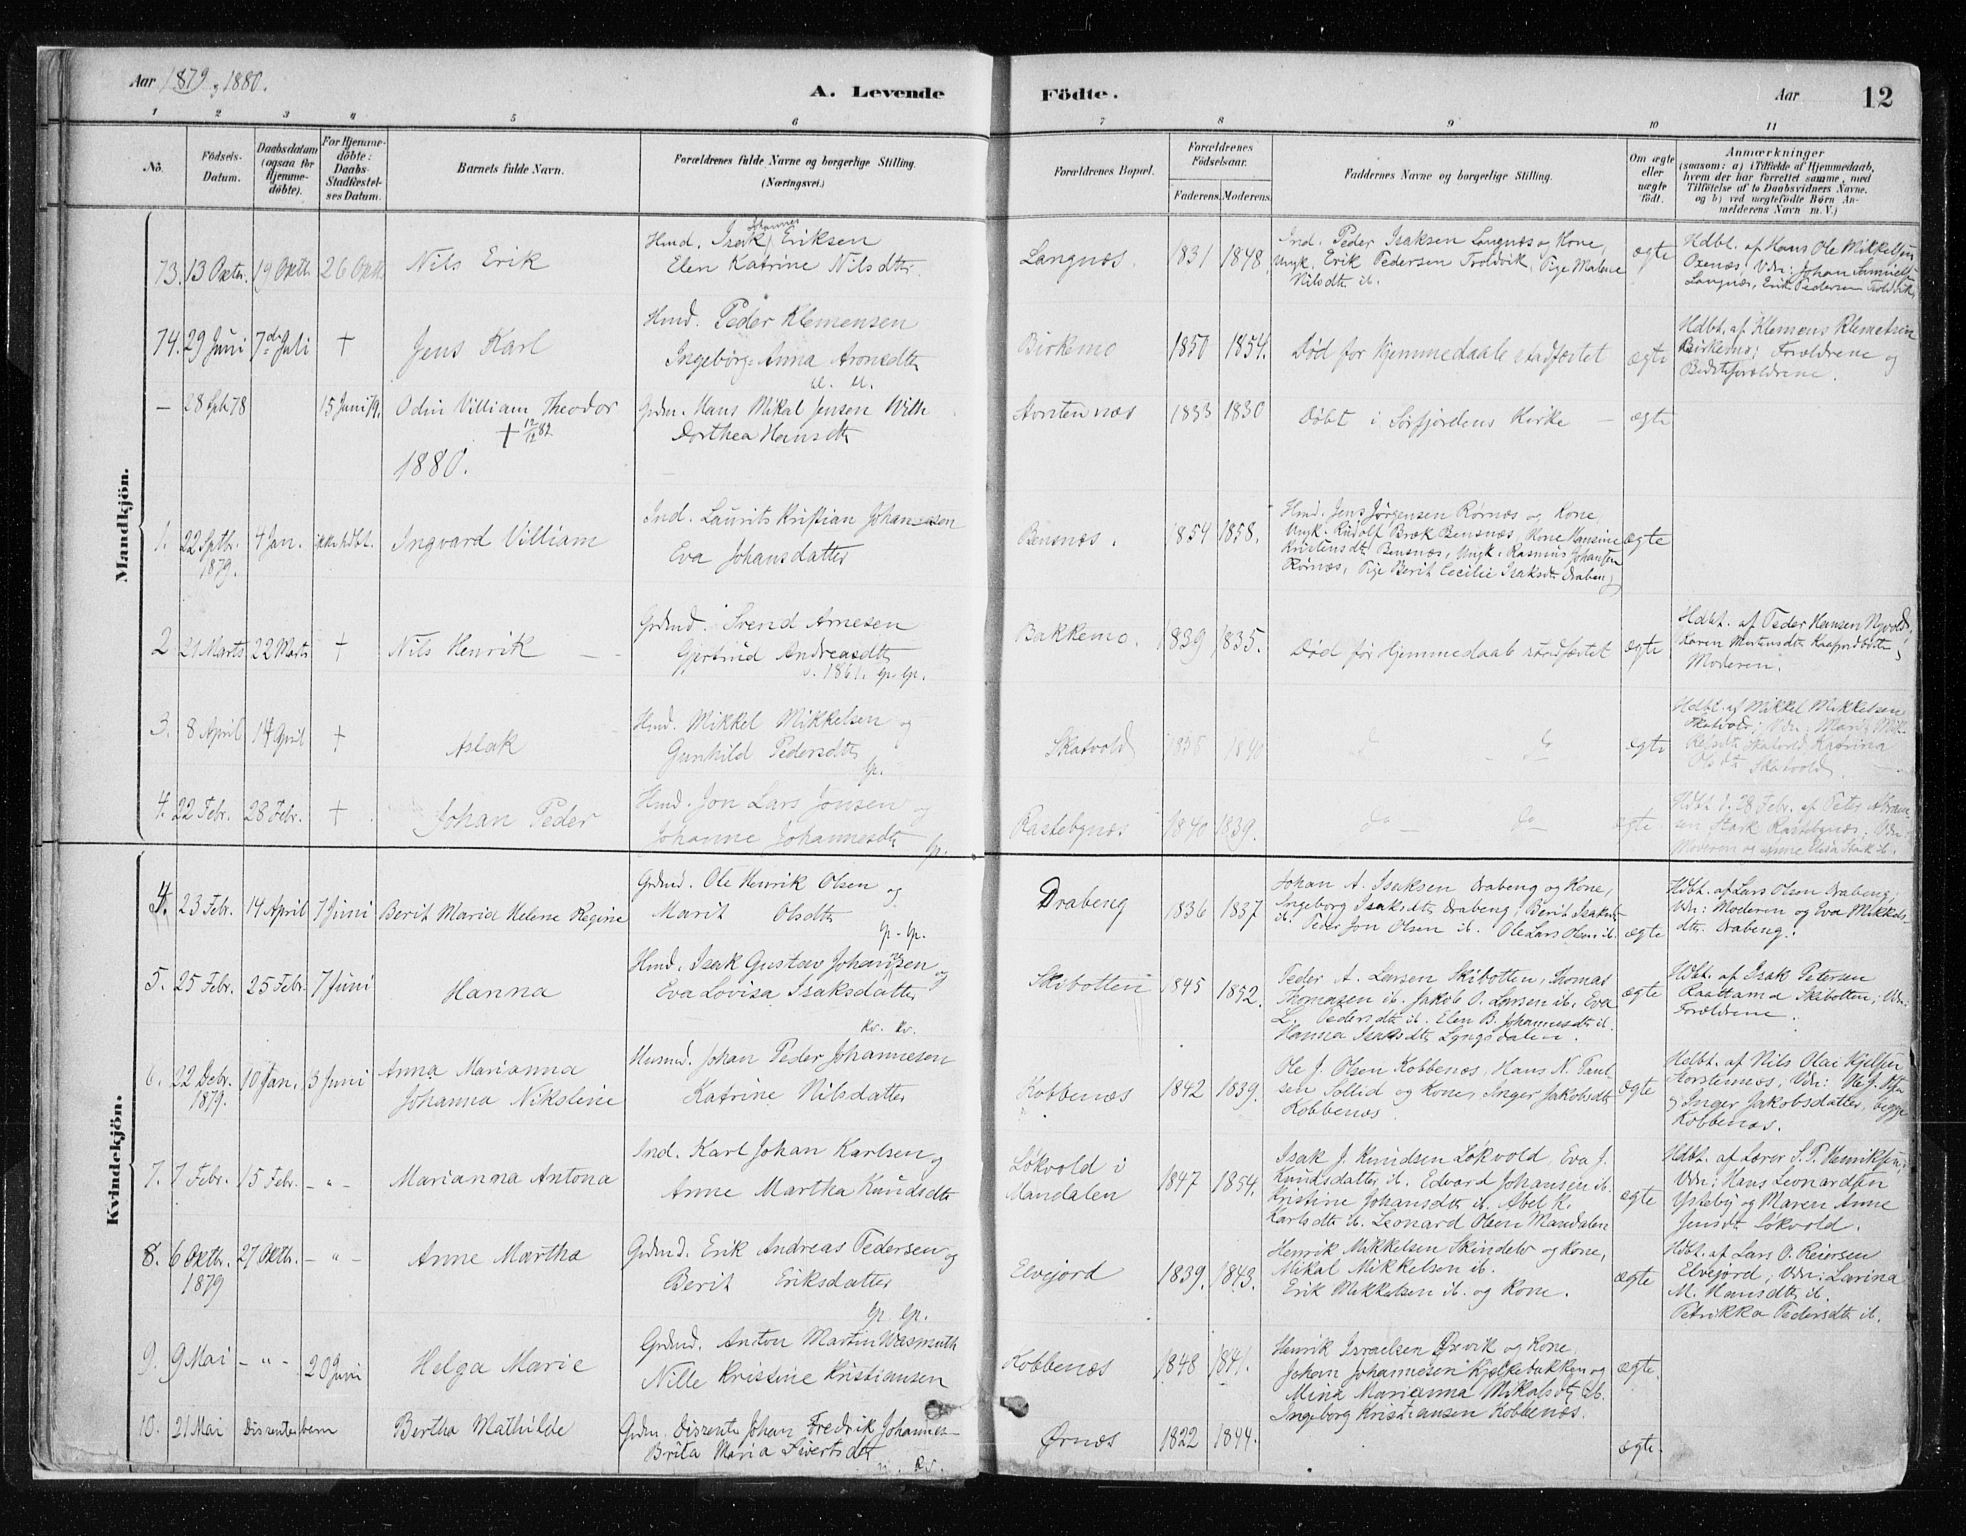 Aar 1879 og 1880.
A. Levende Födte.
Aar
12
1 2 3 4 5 6 7 8 9 10 11
No. Födsels-Datum. Daabsdatum (ogsaa for Hjemme-döbte). For Hjemme-döbte: Daabs-Stadfæstel-ses Datum. Barnets fulde Navn. Forældrenes fulde Navne og borgerlige Stilling. (Næringsvei.) Forældrenes Bopæl. Forældrenes Födselsaar. Faderens. Moderens. Faddernes Navne og borgerlige Stilling. Om ægte eller uægte födt. Anmærkninger (saasom: a) i Tilfælde af Hjemmedaab, hvem der har forrettet samme, med Tilföielse af to Daabsvidners Navne. og b) ved uægtefödte Börn An-melderens Navn m. V.)
Mandkjön.
73. 13 Oktbr. 19 Oktb. 26 Oktb. Nils Erik
Hmd. Isak Johannes Eriksen
Elen Katrine Nilsdtr
Langnæs. 1831 1848.
Ind. Peder Isaksen Langnæs og Kone,
Ungk. Erik Pedersen Troldvik, Pige Malene
Nilsdtr ib.
ægte
Hdbt. af Hans Ole Mikkelsen
Oxenæs, Vdn: Johan Samuels.
Langnæs, Erik Pedersen Troldvik
74. 29 Juni 7de Juli + Jens Karl
Hmd. Peder Klemensen
Ingeborg Anna Aronsdtr
Birkemo 1850 1854.
Död for Hjemmedaabs stadfæstet
ægte
Hdbt. af Klemens Klemetsen
Birkemo; Forældrene og
Bedsteforældrene.
— 28 Sptb. 78 15 Juni 79. Odin Villiam Theodor
+ 12/12 82
Grdm. Hans Mikal Jensen With
Dorthea Hansdtr
Stortennæs 1833 1830
Döbt i Sörfjordens Kirke — ægte
1880.
1. 22 Sptbr. 1879. 4 Jan. ikke hdbt. Ingvard Villiam
Ind. Laurits Kristian Johannesen
Eva Johansdatter
Bensnæs. 1854 1858.
Hmd. Jens Jörgensen Rörnæs og Kone,
Ungk. Rudolf Bræk Bensnæs, Kone Hansine
Kristensdtr Bensnæs, Ungk. Rasmus Johansen
Rörnæs, Pige Berit Cecilie Isaksdtr Drabeng
ægte
2 21 Marts 22 Marts + Nils Henrik
Grdmd. Svend Arnesen
Gjertrud Andreasdtr
Bakkemo. 1839 1835.
Död for Hjemmedaab stadfæstet ægte
Hdbt. af Peder Hansen Nyvold,
Karen Mortensdtr Kaafjordbotten
Moderen.
3. 8 April 14 April + Aslak
Hmd. Mikkel Mikkelsen og
Gunhild Pedersdtr
Lp.
Skatvold 1838 1840
do do
ægte
Hdbt. af Mikkel Mikkelsen
Skatvold; Vdn: Marit Mik-
kelsdtr Skatvold, Katrina
Olsdtr Skatvold.
4. 22 Febr. 28 Febr. + Johan Peder
Hmd. Jon Lars Jonsen og
Johanne Johannesdtr
Lp.
Rastebynæs 1840 1839.
do — do
ægte.
Hdbt. d. 28 Febr. af Peter Abram-
sen Rastebynæs; Vdn:
Moderen og
Kvindekjön.
4. 23 Febr. 14 April 7 Juni Berit Maria Helene Regine
Grdmd. Ole Henrik Olsen og
Marit Olsdtr
Lp. Lp.
Drabeng 1836 1837
Johan A. Isaksen Drabeng og Kone,
Ingeborg Isaksdtr Drabeng, Berit Isaksdtr
ib. Peder Jon Olsen ib. Ole Lars Olsen ib.
ægte
Hdbt. af Lars Olsen Drabeng,
Vdn: Moderen og Eva Mikkels-
dtr Drabeng.
5. 25 Febr. 25 Febr. 7 Juni Hanna
Hmd. Isak Gustav Johannesen og
Eva Lovisa Isaksdatter
Kv. Kv.
Skibotten 1845 1852.
Peder A. Larsen Skibotten, Thomas
Thomasen ib. Jakob O. Larsen ib. Eva
L. Pedersdtr ib. Elen B. Johannesdtr ib.
Hanna Isaksdtr Lyngsdalen.
ægte
Hdbt. af Isak Petersen
Raattama Skibotten; Vdn:
Forældrene.
6. 22 Debr. 1879. 10 Jan. 3 Juni Anna Marianna
Johanna Nikoline
Husmd. Johan Peder Johannesen
Katrine Nilsdatter
Kobbenæs 1842 1839.
Ole J. Olsen Kobbenæs, Hans N. Paul-
sen Sollid og Kone, Inger Jakobsdtr
Kobbenæs
ægte
Hdbt. af Nils Olai Kjelsen
Storstennæs, Vdn: Ole J. Olsen
og Inger Jakobsdatter, begge
Kobbenæs.
7. 7 Febr. 15 Febr. — " — Marianna Antona
Ind. Karl Johan Karlsen og
Anne Martha Knudsdtr
Lökvold i
Mandalen 1847 1854.
Isak J. Knudsen Lökvold, Eva J.
Knudsdatter ib. Edvard Johansen ib.
Kristine Johansdtr ib. Abel K.
Karlsdtr ib. Leonard Olsen Mandalen
ægte
Hdbt. af Lærer S. P. Henriksen,
Vdn: Hans Leonardsen
Ysteby og Maren Anne
Jensdtr Lökvold.
8. 6 Oktb. 1879 27 Oktb. — " — Anne Martha
Grdmd. Erik Andreas Pedersen og
Berit Eriksdatter
Lp. Lp.
Elvejord 1839. 1843.
Henrik Mikkelsen Skindelv og Kone,
Mikal Mikkelsen ib.
Erik Mikkelsen ib. og Kone.
ægte
Hdbt. af Lars O. Reiersen
Elvejord; Vdn: Larina
M. Hansdtr ib.
Petrikka Pedersdtr ib.
9. 9 Mai — " — 20 Juni Helga Marie
Grdmd. Anton Martin Wasmuth
Nille Kristine Kristiansen
Kobbenæs 1848 1841.
Henrik Israelsen Örsvik og Kone,
Johan Johannesen Kjelkebakken og
Mina Marianna Mikalsdtr ib.
Ingeborg Kristiansen Kobbenæs.
ægte.
10. 21 Mai Dissenterbarn Bertha Mathilde
Grdm. Dissenter Johan Fredrik Johannes-
Brita Maria Sivertsdtr
Kv.
Ørnæs 1822 1844.
ægte.